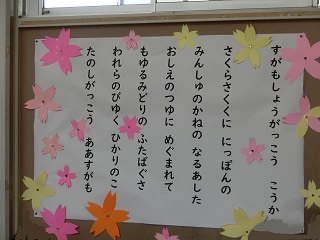 すがもしょうがっこう　こうか
さくらさくくに にっぽんの
みんしゅのかねの なるあした
おしえのつゆに めぐまれて
もゆるみどりの ふたばぐさ
われらのびゆく ひかりのこ
たのしがっこう ああすがも